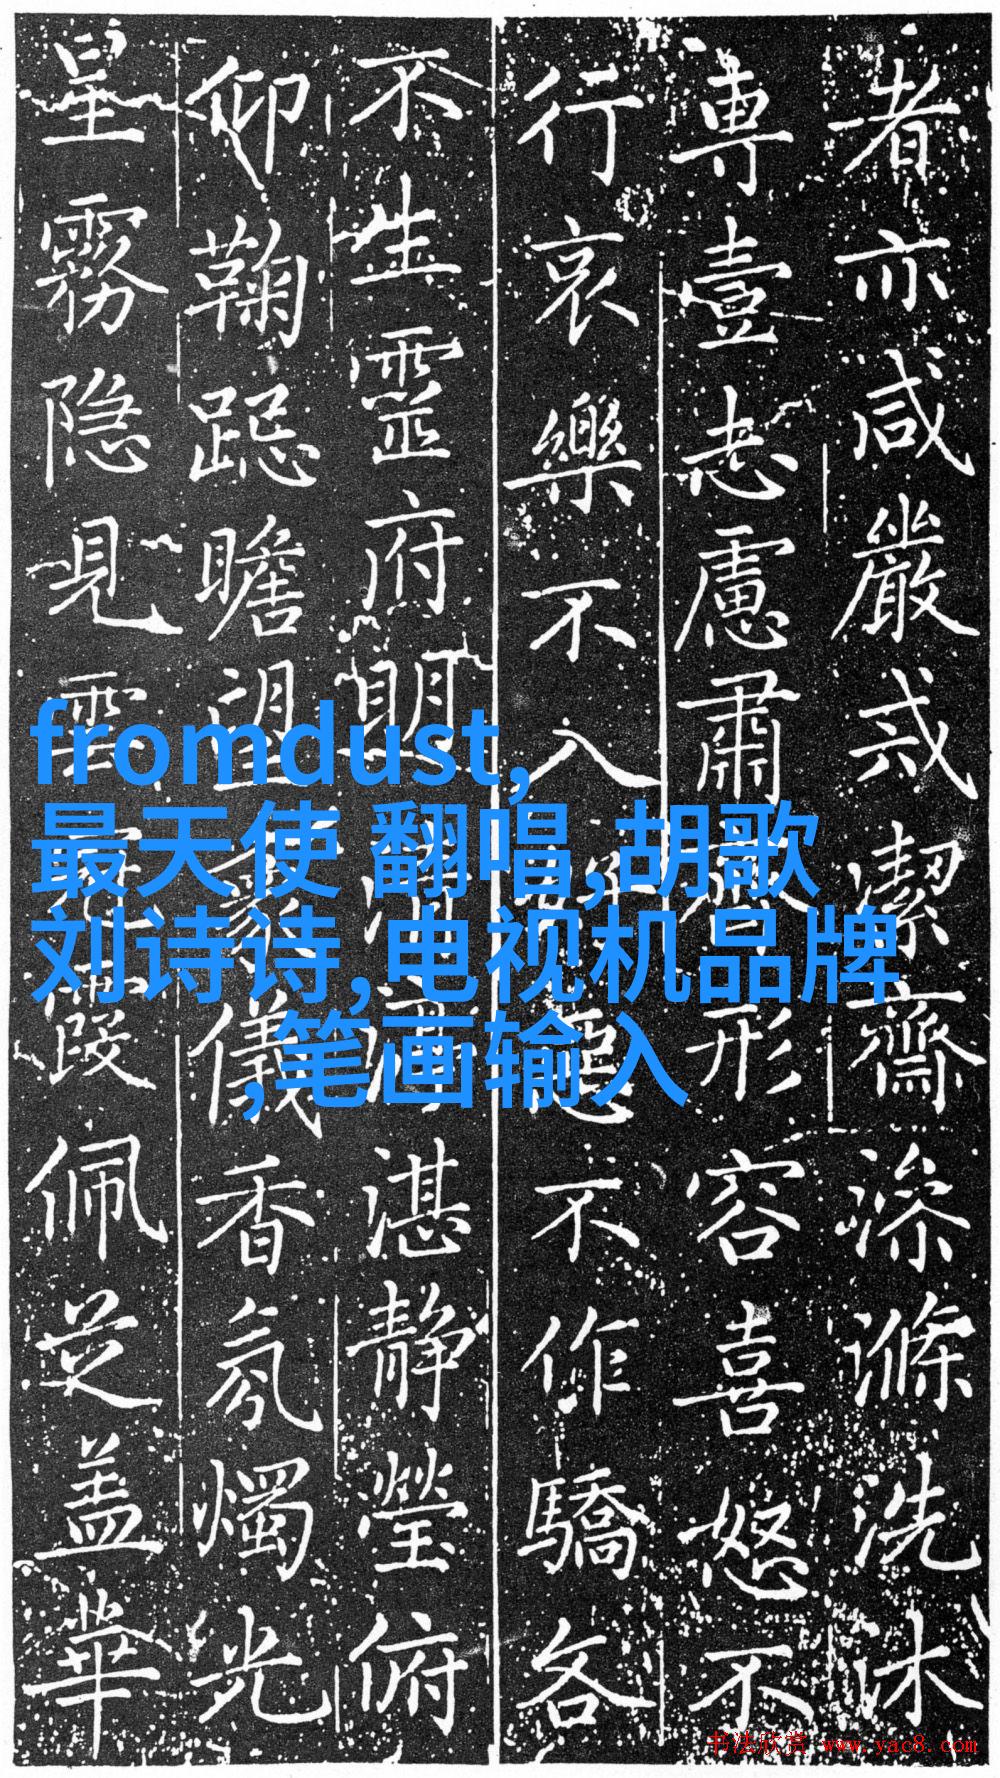 者亦咸嚴戒潔齋澡滌洗沐
專壹志慮肅形容喜怒不
行哀樂不入不作驕各
不生靈府明湛静瑩俯
仰鞠跽瞻望儀香氛燭光
星霧隐見雲佩芝盖華
fromdust,
最天使 翻唱,胡歌
刘诗诗,电视机品牌
,笔画输入
书法欣赏 www.yac8.com